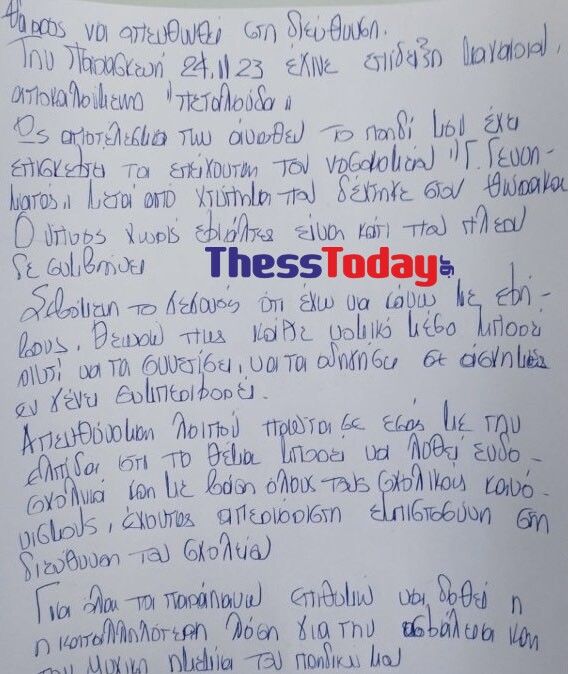 θάρρος να απευθυνθεί στη διεύθυνση.
Την Παρασκευή 24.11.23 έγινε επίδειξη
αποκαλούμενο "πεταλούδα"
Ως αποτέλεσμα των άνωθεν το παιδί μου έχει
επισκεφτεί τα επείγοντα του νοσοκομείου "Γ. Γεννη-
ματάς" μετά από χτύπημα που δέχτηκε στον θώρακα
Ο ύπνος χωρίς εφιάλτες είναι κάτι που πλέον
δε συμβαίνει
ThessToday.gr
Σέβομαι το γεγονός ότι έχω να κάνω με εφή-
βους, θεωρώ πως κάθε νομικό μέσο μπορεί
αντί να τα συνετίσει, να τα οδηγήσει σε άσχημες
εν γένει συμπεριφορές.
Απευθύνομαι λοιπόν πρώτα σε εσάς με την
ελπίδα ότι το θέμα μπορεί να λυθεί ενδο-
σχολικά και με βάση όλους τους σχολικούς κανο-
νισμούς, έχοντας απεριόριστη εμπιστοσύνη στη
διεύθυνση του σχολείου
Για όλα τα παραπάνω επιθυμώ να δοθεί η
η καταλληλότερη λύση για την ασφάλεια και
την ψυχική ηρεμία του παιδιού μου